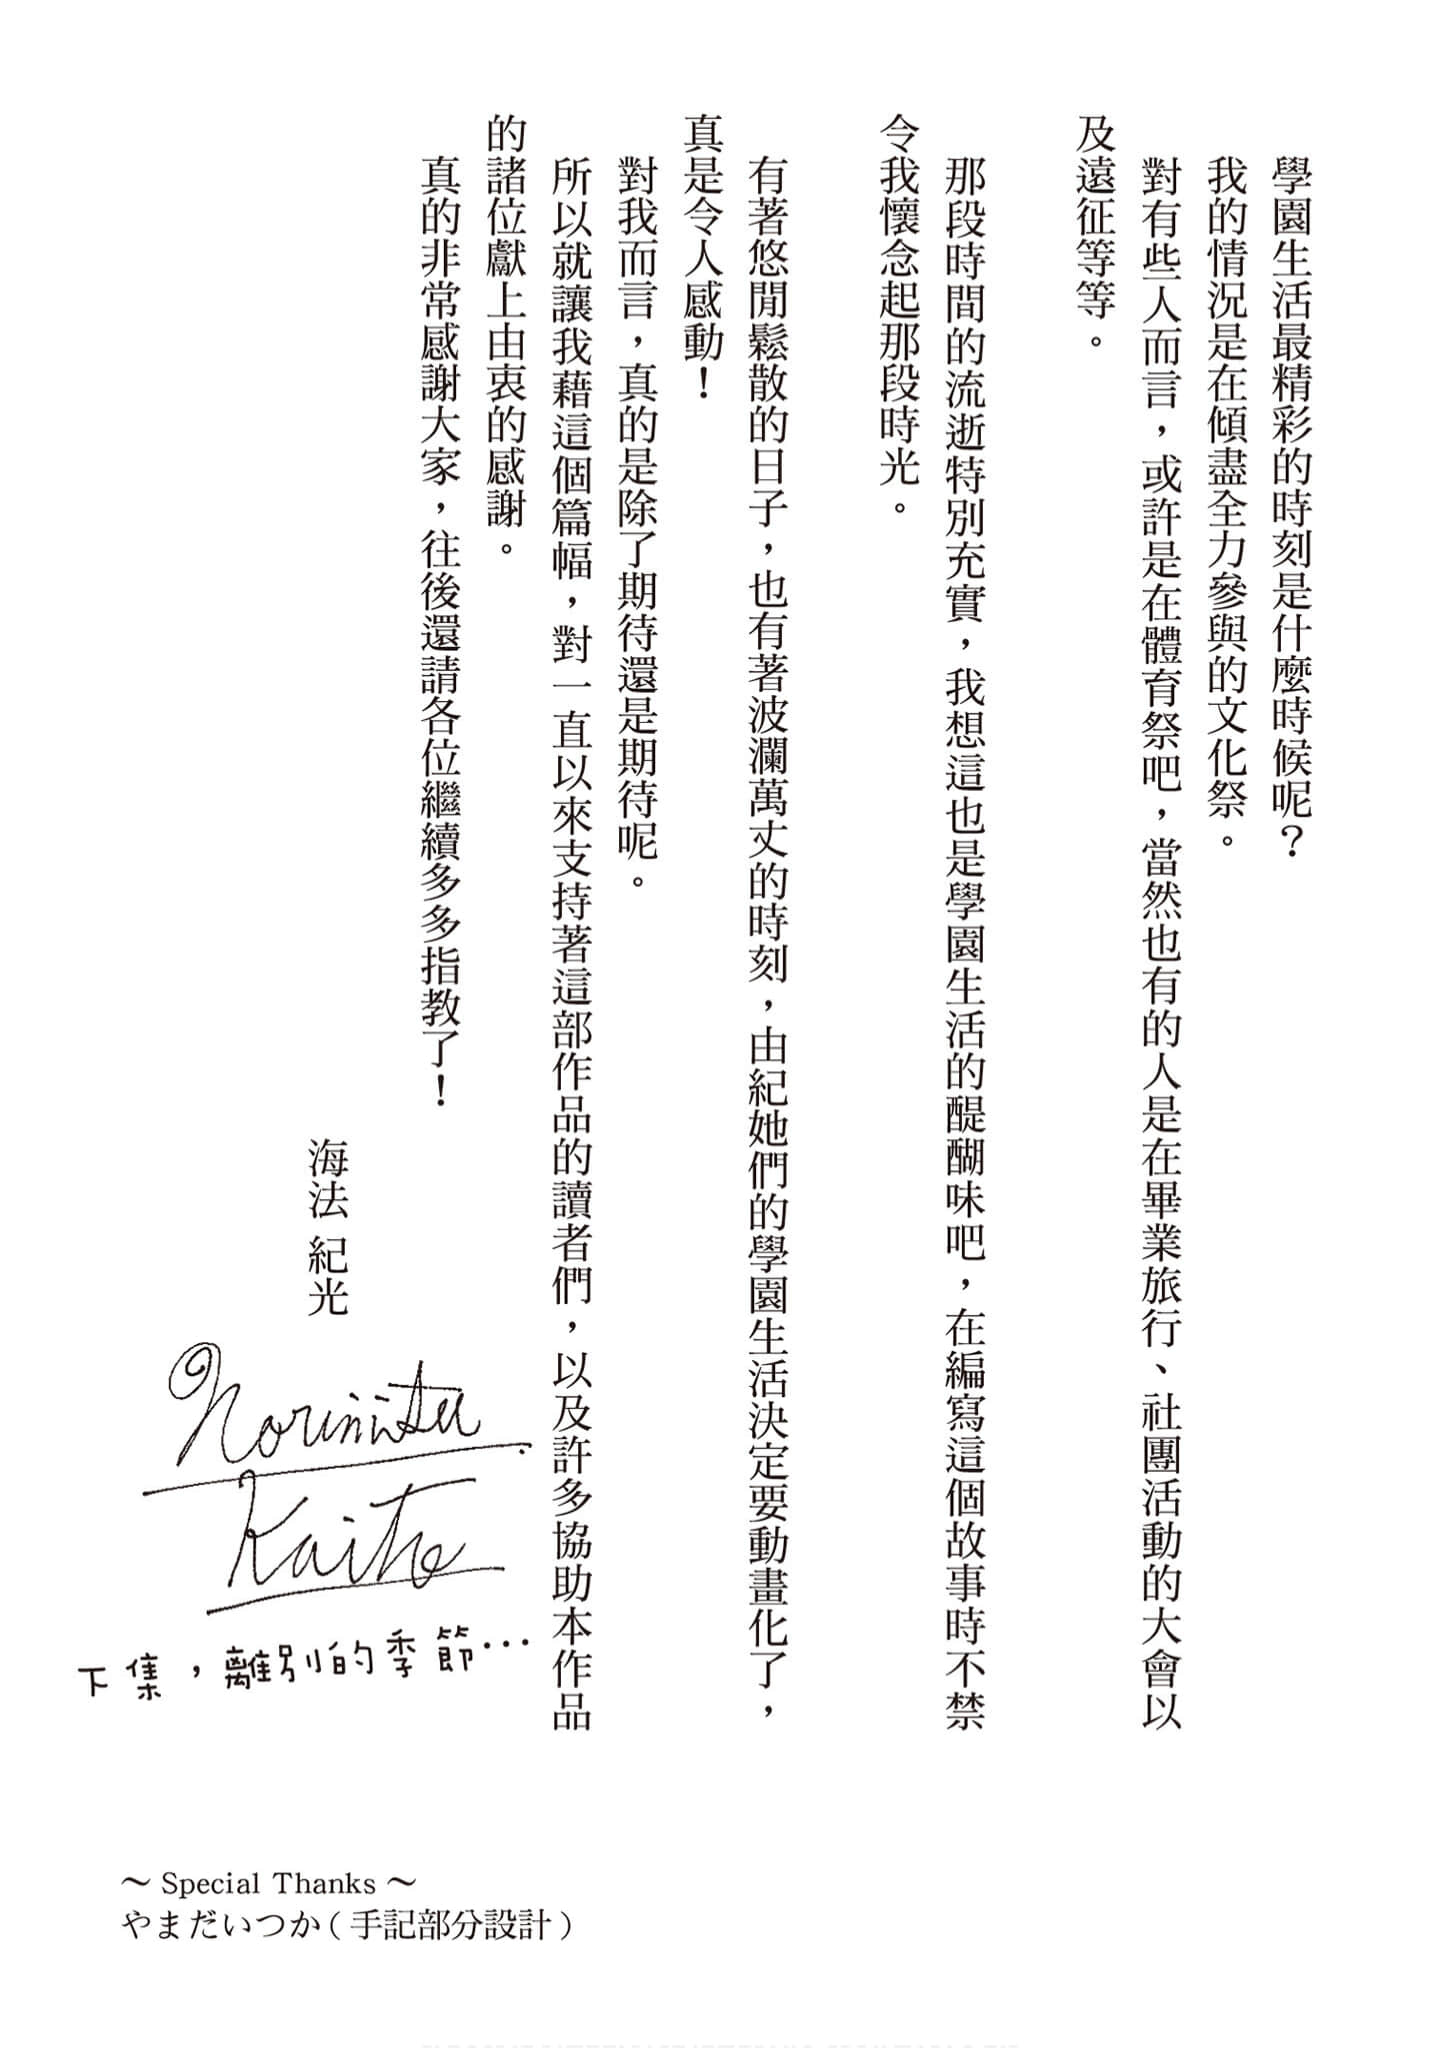 學園生活最精彩的時刻是什麼時候呢？
我的情況是在傾盡全力參與的文化祭。
對有些人而言，或許是在體育祭吧，當然也有的人是在畢業旅行、社團活動的大會以
及遠征等等。
那段時間的流逝特別充實，我想這也是學園生活的醍醐味吧，在編寫這個故事時不禁
令我懷念起那段時光。
有著悠閒鬆散的日子，也有著波瀾萬丈的時刻，由紀她們的學園生活決定要動畫化了，
真是令人感動！
對我而言，真的是除了期待還是期待呢。
所以就讓我藉這個篇幅，對一直以來支持著這部作品的讀者們，以及許多協助本作品
的諸位獻上由衷的感謝。
真的非常感謝大家，往後還請各位繼續多多指教了！
海法 紀光
Norimitsu
Kaiho
下集，離別的季節⋯
～Special Thanks～
やまだいつか（手記部分設計）